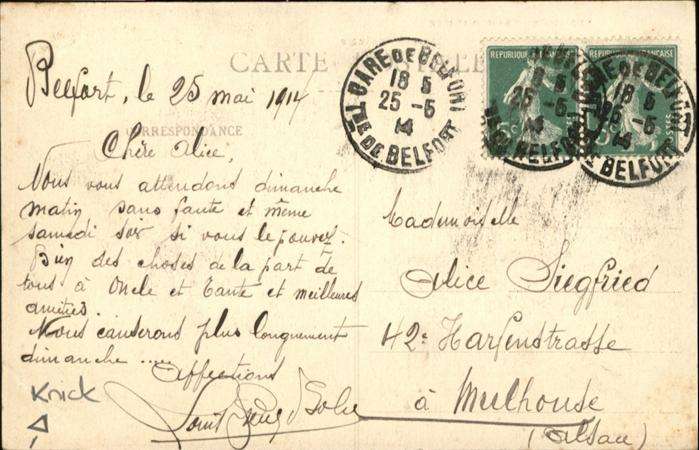 CARTE
Belfort, le 25 mai 1914
CORRESPONDANCE
Chère Alice,
Nous vous attendons dimanche
matin sans faute et même
samedi soir si vous le pouvez.
Bien des choses de la part de
tous à Oncle et Tante et meilleures
amitiés.
Nous causerons plus longuement
dimanche .....
Affections
Knick
GARE DE BELFORT
18 5
25 - 5
14
TRE DE BELFORT
REPUBLIQUE FRANÇAISE
REPUBLIQUE FRANÇAISE
GARE DE BELFORT
18 5
25 - 5
14
BELFORT
Mademoiselle
Alice Siegfried
42 Harfenstrasse
à Mulhouse
(Alsace)